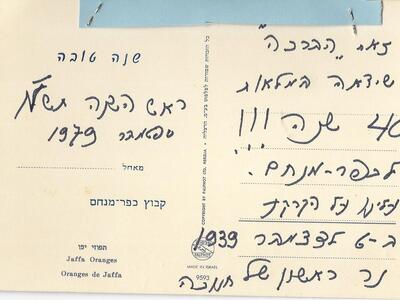 שנה טובה
ראש השנה תש"מ
ספטמבר 1979
מאחל
קבוץ כפר-מנחם
תפוזי יפו
Jaffa Oranges
Oranges de Jaffa
כל הזכויות שמורות לפלפוט בע"מ. הרצליה
COPYRIGHT BY PALPHOT LTD. HERZLIA
MADE IN ISRAEL
9593
זאת "הברכה"
שיצאה במלאות
40 שנה !!!
לכפר-מנחם.
עלינו על הקרקע
ב-6 לדצמבר 1939
נר ראשון של חנוכה